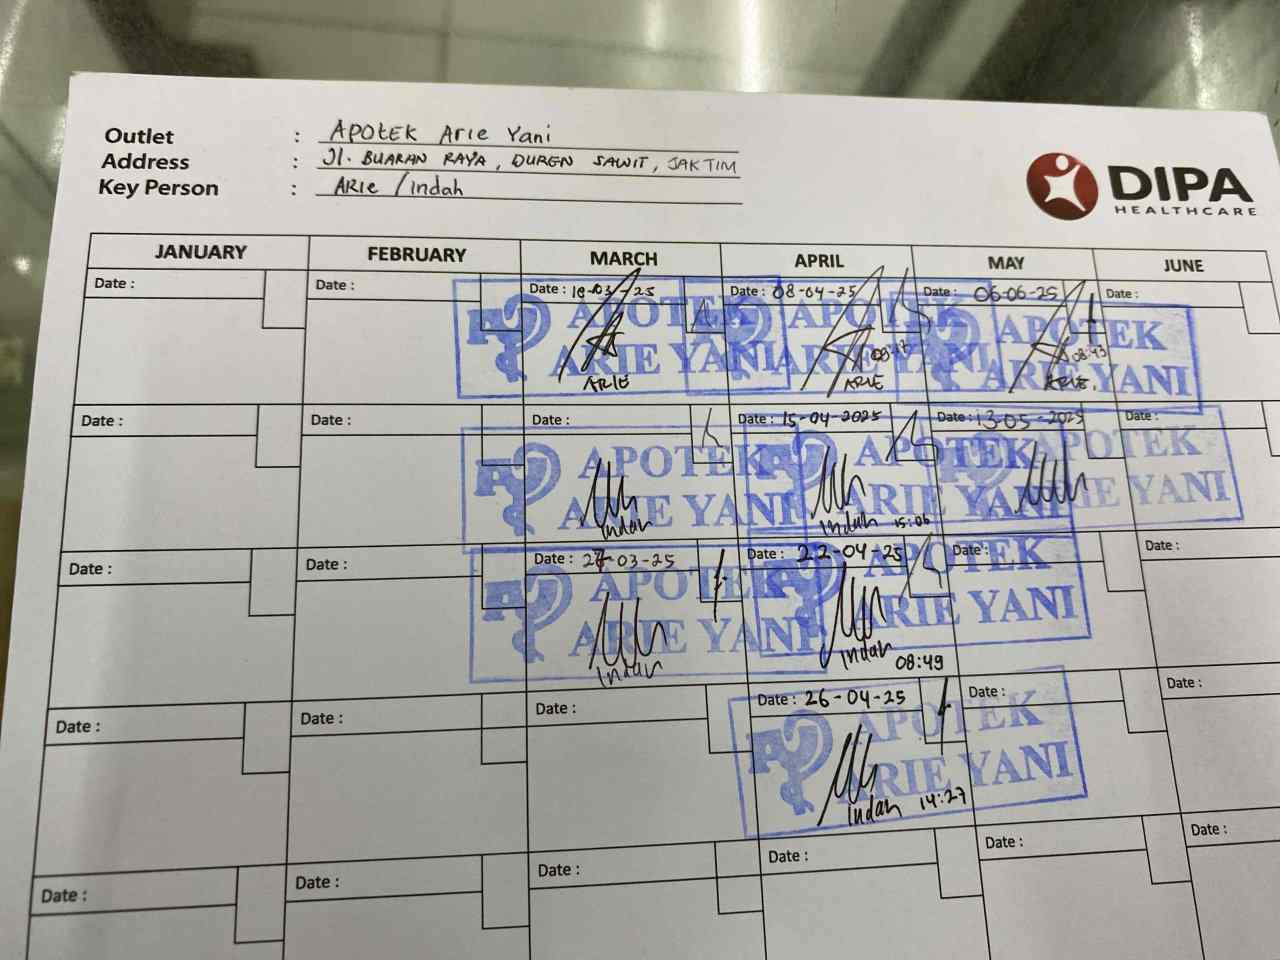 Outlet : APOTEK Arie Yani
Address : Jl. BUARAN RAYA, DUREN SAWIT, JAKTIM
Key Person : ARIE / Indah
DIPA
HEALTHCARE
JANUARY FEBRUARY MARCH APRIL MAY JUNE
Date : Date : Date : 18-03-25 Date : 08-04-25 Date : 06-06-25 Date :
APOTEK APOTEK APOTEK
ARIE YANI ARIE YANI ARIE YANI
08:43
ARIE ARIE ARIE.
Date : Date : Date : Date : 15-04-2025 Date : 13-05-2025 Date :
APOTEK APOTEK APOTEK
ARIE YANI ARIE YANI ARIE YANI
Indah Indah 15:06
Date : Date : Date : 27-03-25 Date : 22-04-25 Date : Date :
APOTEK APOTEK
ARIE YANI ARIE YANI
Indah Indah 08:49
Date : Date : Date : Date : 26-04-25 Date : Date :
APOTEK
ARIE YANI
Indah 14:27
Date : Date : Date : Date : Date : Date :